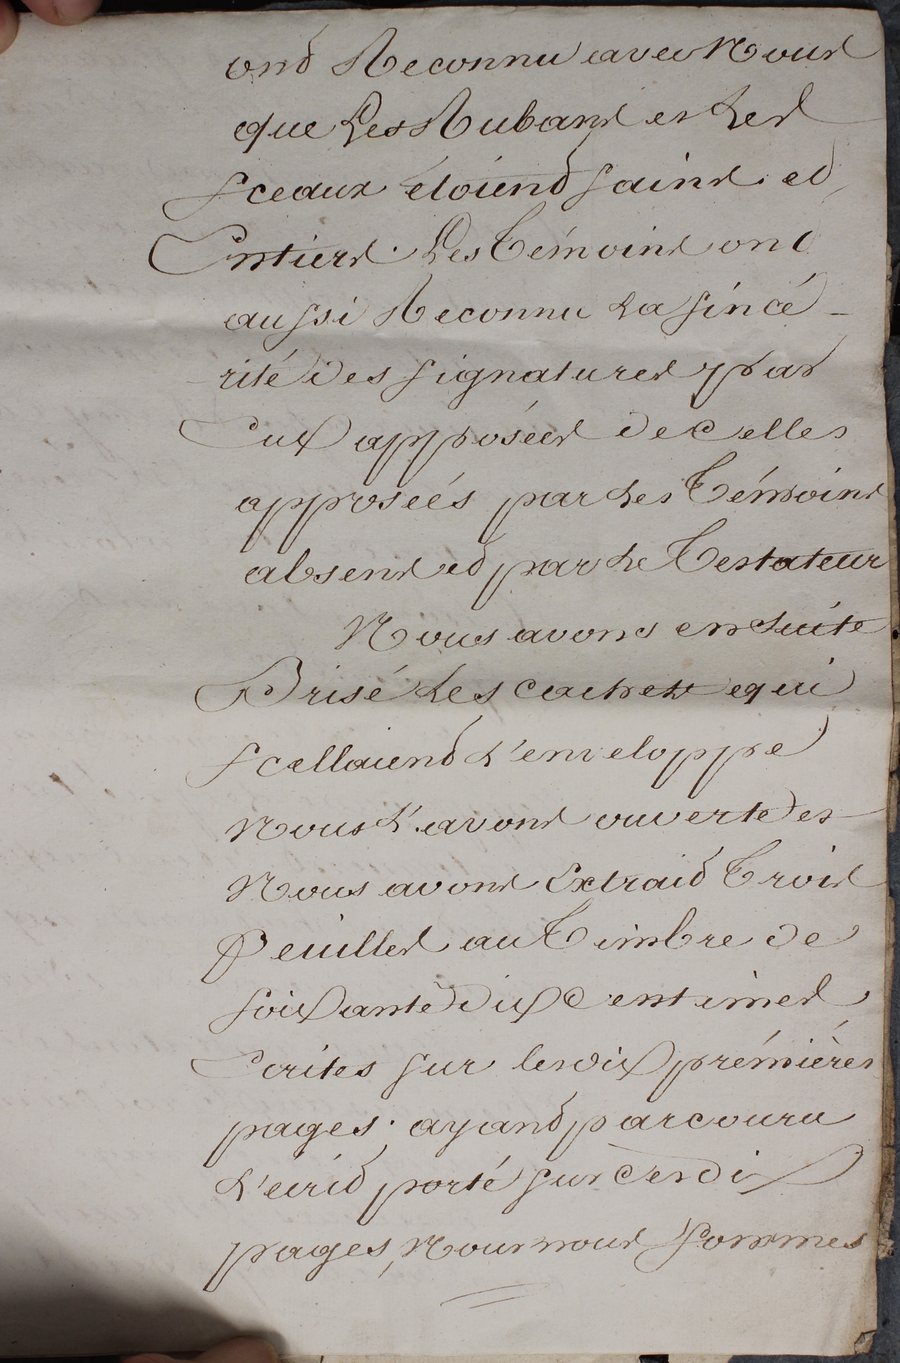 ont Reconnu avec Nous
que Les Rubans et Les
sceaux étoient sains et
Entiers. Les Témoins ont
aussi Reconnu La sincé-
rité des signatures par
Eux apposées de celles
apposeés par Les Témoins
absens et par Le Testateur
Nous avons ensuite
Brisé Les cachets qui
scellaient L'enveloppe
Nous L'avons ouverte et
Nous avons Extrait Trois
feuilles au Timbre de
soixante dix Centimes
Ecrites sur les dix prémières
pages. ayant parcouru
L'écrit porté sur ces dix
pages, Nous nous sommes